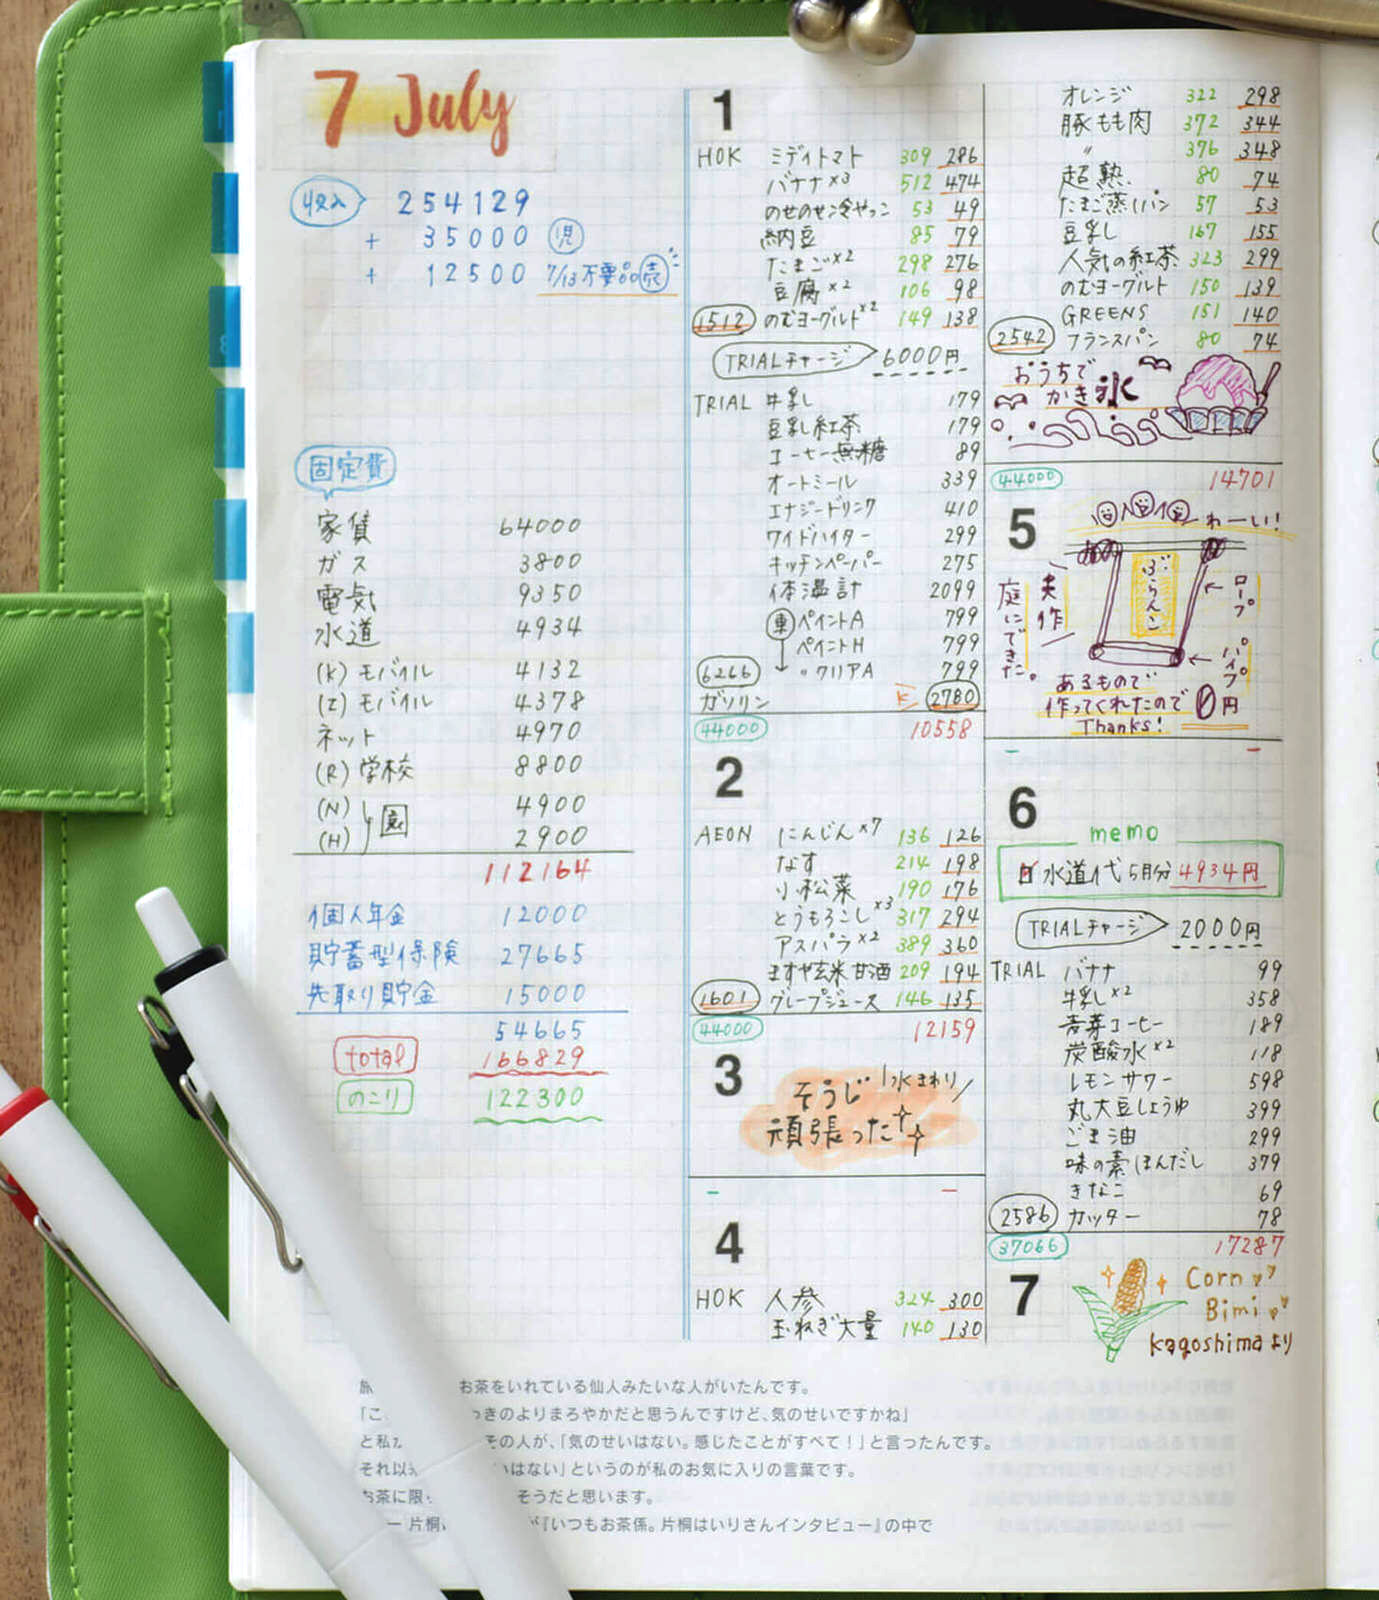 7 July
収入 254129
+ 35000 児
+ 12500 7/13不要品売
固定費
家賃 64000
ガス 3800
電気 9350
水道 4934
(K) モバイル 4132
(I) モバイル 4378
ネット 4970
(R) 学校 8800
(N) 4900
(H) 園 2900
112164
個人年金 12000
貯蓄型保険 27665
先取り貯金 15000
54665
total 166829
のこり 122300
1
HOK ミディトマト 309 286
バナナ×3 512 474
のせのせ冷やっこ 53 49
納豆 85 79
たまご×2 298 276
豆腐×2 106 98
1512 のむヨーグルト×2 149 138
TRIALチャージ 6000円
TRIAL 牛乳 179
豆乳紅茶 179
コーヒー無糖 89
オートミール 339
エナジードリンク 410
ワイドハイター 299
キッチンペーパー 275
体温計 2099
車 ペイントA 799
ペイントH 799
6266 〃クリアA 799
ガソリン K 2780
44000 10558
2
AEON にんじん×7 136 126
なす 214 198
小松菜 190 176
とうもろこし×3 317 294
アスパラ×2 389 360
ますや玄米甘酒 209 194
1601 グレープジュース 146 135
44000 12159
3
そうじ 水まわり
頑張った
- -
4
HOK 人参 324 300
玉ねぎ大量 140 130
オレンジ 322 298
豚もも肉 372 344
〃 376 348
超熟 80 74
たまご蒸しパン 57 53
豆乳 167 155
人気の紅茶 323 299
のむヨーグルト 150 139
GREENS 151 140
2542 フランスパン 80 74
おうちで
かき氷
44000 14701
5
わーい!
ぶらんこ
ロープ
パイプ
夫作
庭にできた。
あるもので
作ってくれたので 0円
Thanks!
- -
6
memo
水道代 5月分 4934円
TRIALチャージ 2000円
TRIAL バナナ 99
牛乳×2 358
麦芽コーヒー 189
炭酸水×2 118
レモンサワー 598
丸大豆しょうゆ 399
ごま油 299
味の素ほんだし 379
きなこ 69
2586 カッター 78
37066 17287
7
Corn
Bimi
Kagoshimaより
お茶をいれている仙人みたいな人がいたんです。
「こ きのよりまろやかだと思うんですけど、気のせいですかね」
と私が その人が、「気のせいはない。感じたことがすべて！」と言ったんです。
それ以 いはない」というのが私のお気に入りの言葉です。
お茶に限 そうだと思います。
— 片桐 が『いつもお茶係。片桐はいりさんインタビュー』の中で